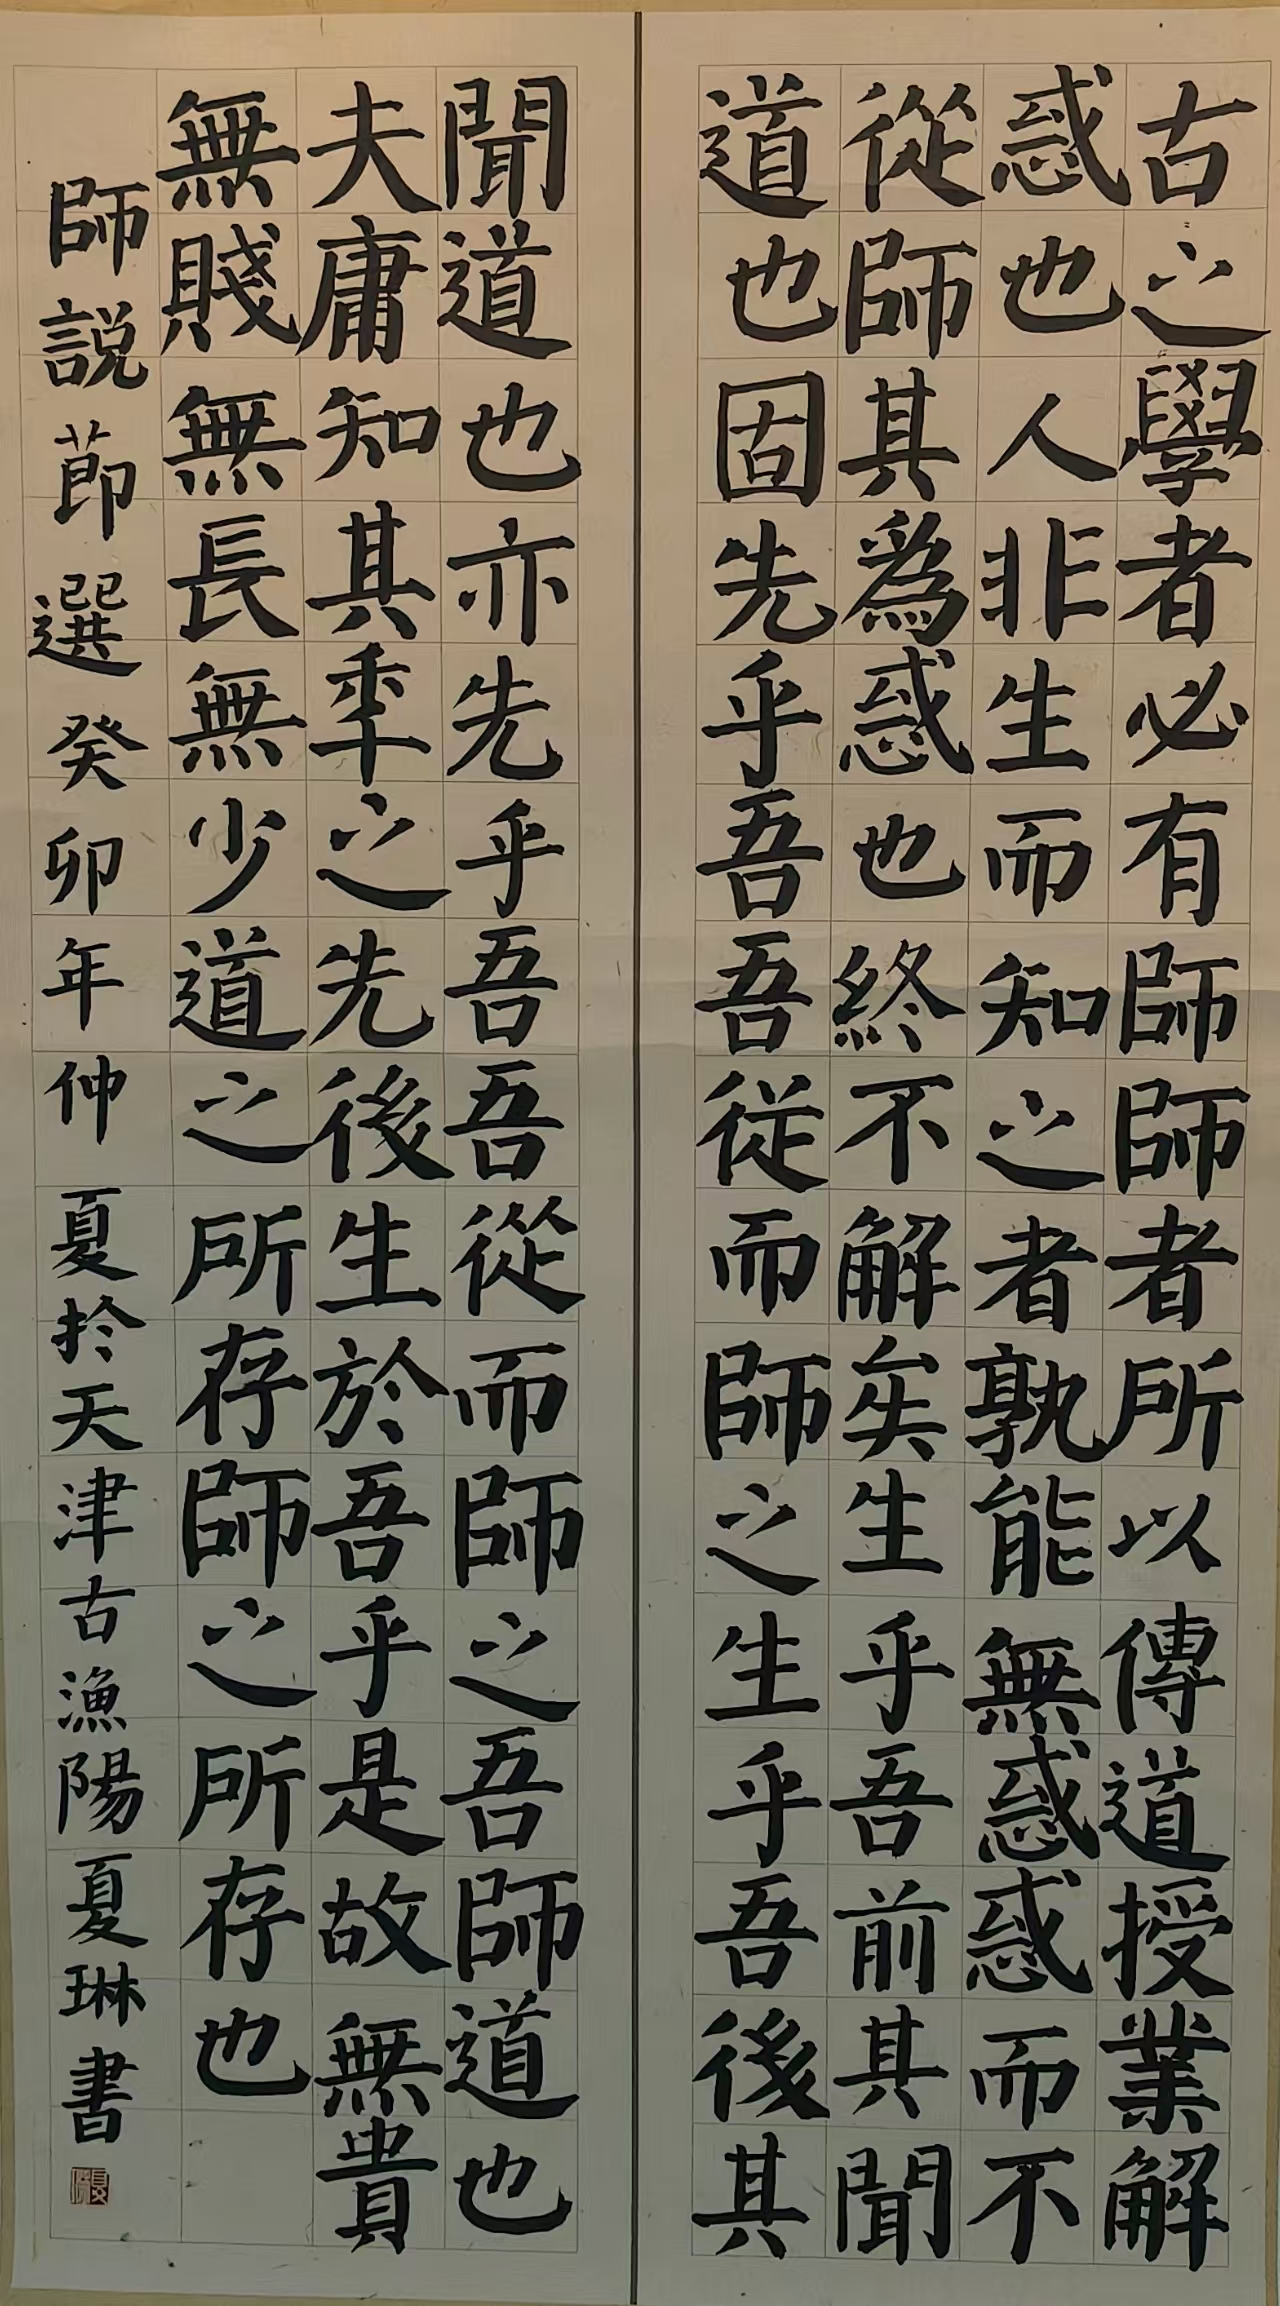 古之學者必有師師者所以傳道授業解
惑也人非生而知之者孰能無惑惑而不
從師其爲惑也終不解矣生乎吾前其聞
道也固先乎吾吾従而師之生乎吾後其
聞道也亦先乎吾吾從而師之吾師道也
夫庸知其秊之先後生於吾乎是故無貴
無賤無長無少道之所存師之所存也
師説莭選癸卯年仲夏扵天津古漁陽夏琳書